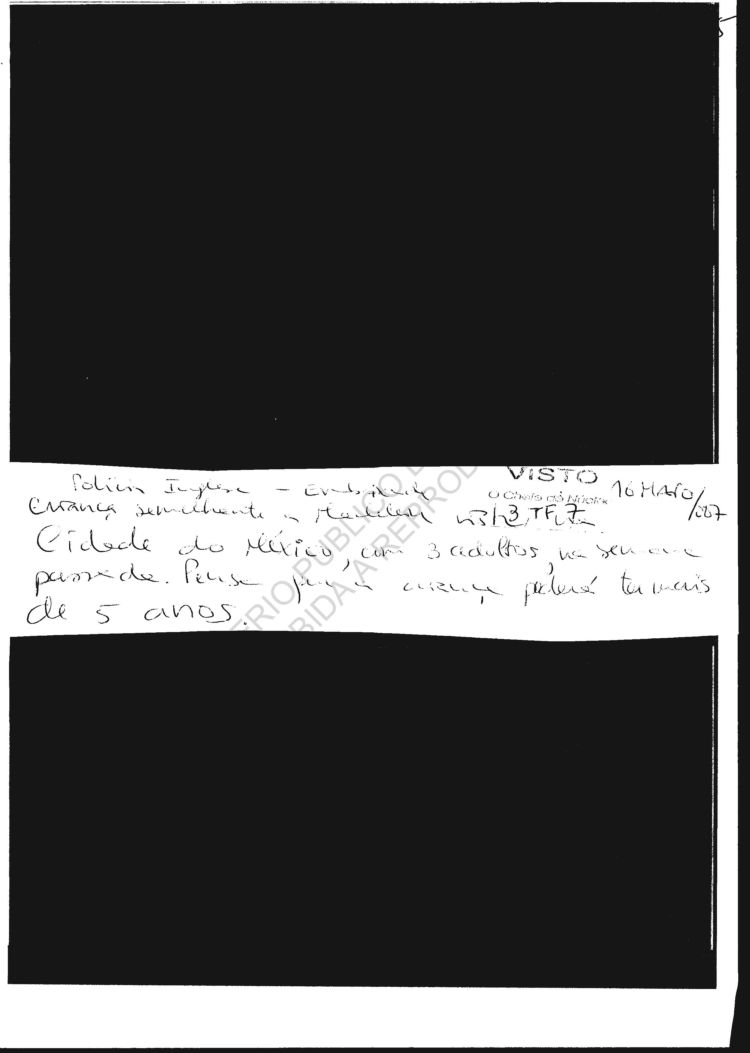 VISTO
O Chefe do Núcleo
16 MAIO/007
Polícia Inglesa -
Criança semelhante a Madeleine
Cidade do México, com 3 adultos, na semana
passada. Pensa que a criança poderá ter mais
de 5 anos.
ÉRIO PÚBLICO D
BIDA A REPROD